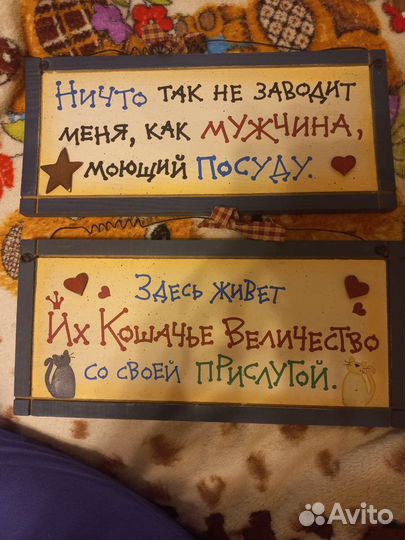 Ничто так не заводит
меня, как мужчина,
моющий посуду.
Здесь живет
Их Кошачье Величество
со своей прислугой.
Avito